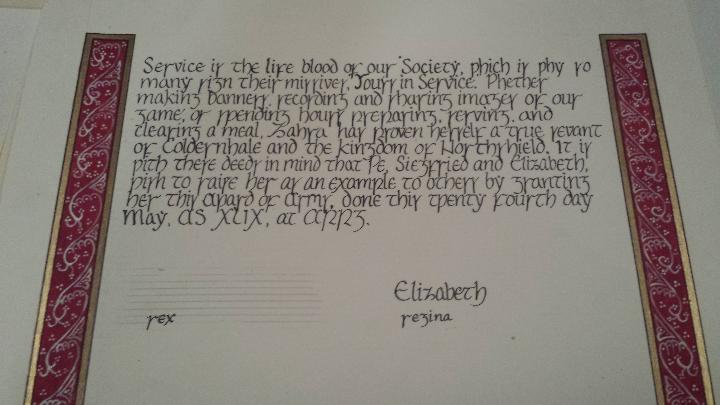 Service is the life blood of our Society, which is why so
many sign their missives, Yours in Service. Whether
making banners, recording and sharing images of our
game, or spending hours preparing, serving, and
clearing a meal, Zahra has proven herself a true sevant
of Coldernhale and the kingdom of Northshield. It is
with these deeds in mind that We, Siegfried and Elizabeth,
wish to raise her as an example to others by granting
her this Award of Arms, done this twenty fourth day
May, AS XLIX, at
Elizabeth
rex
regina